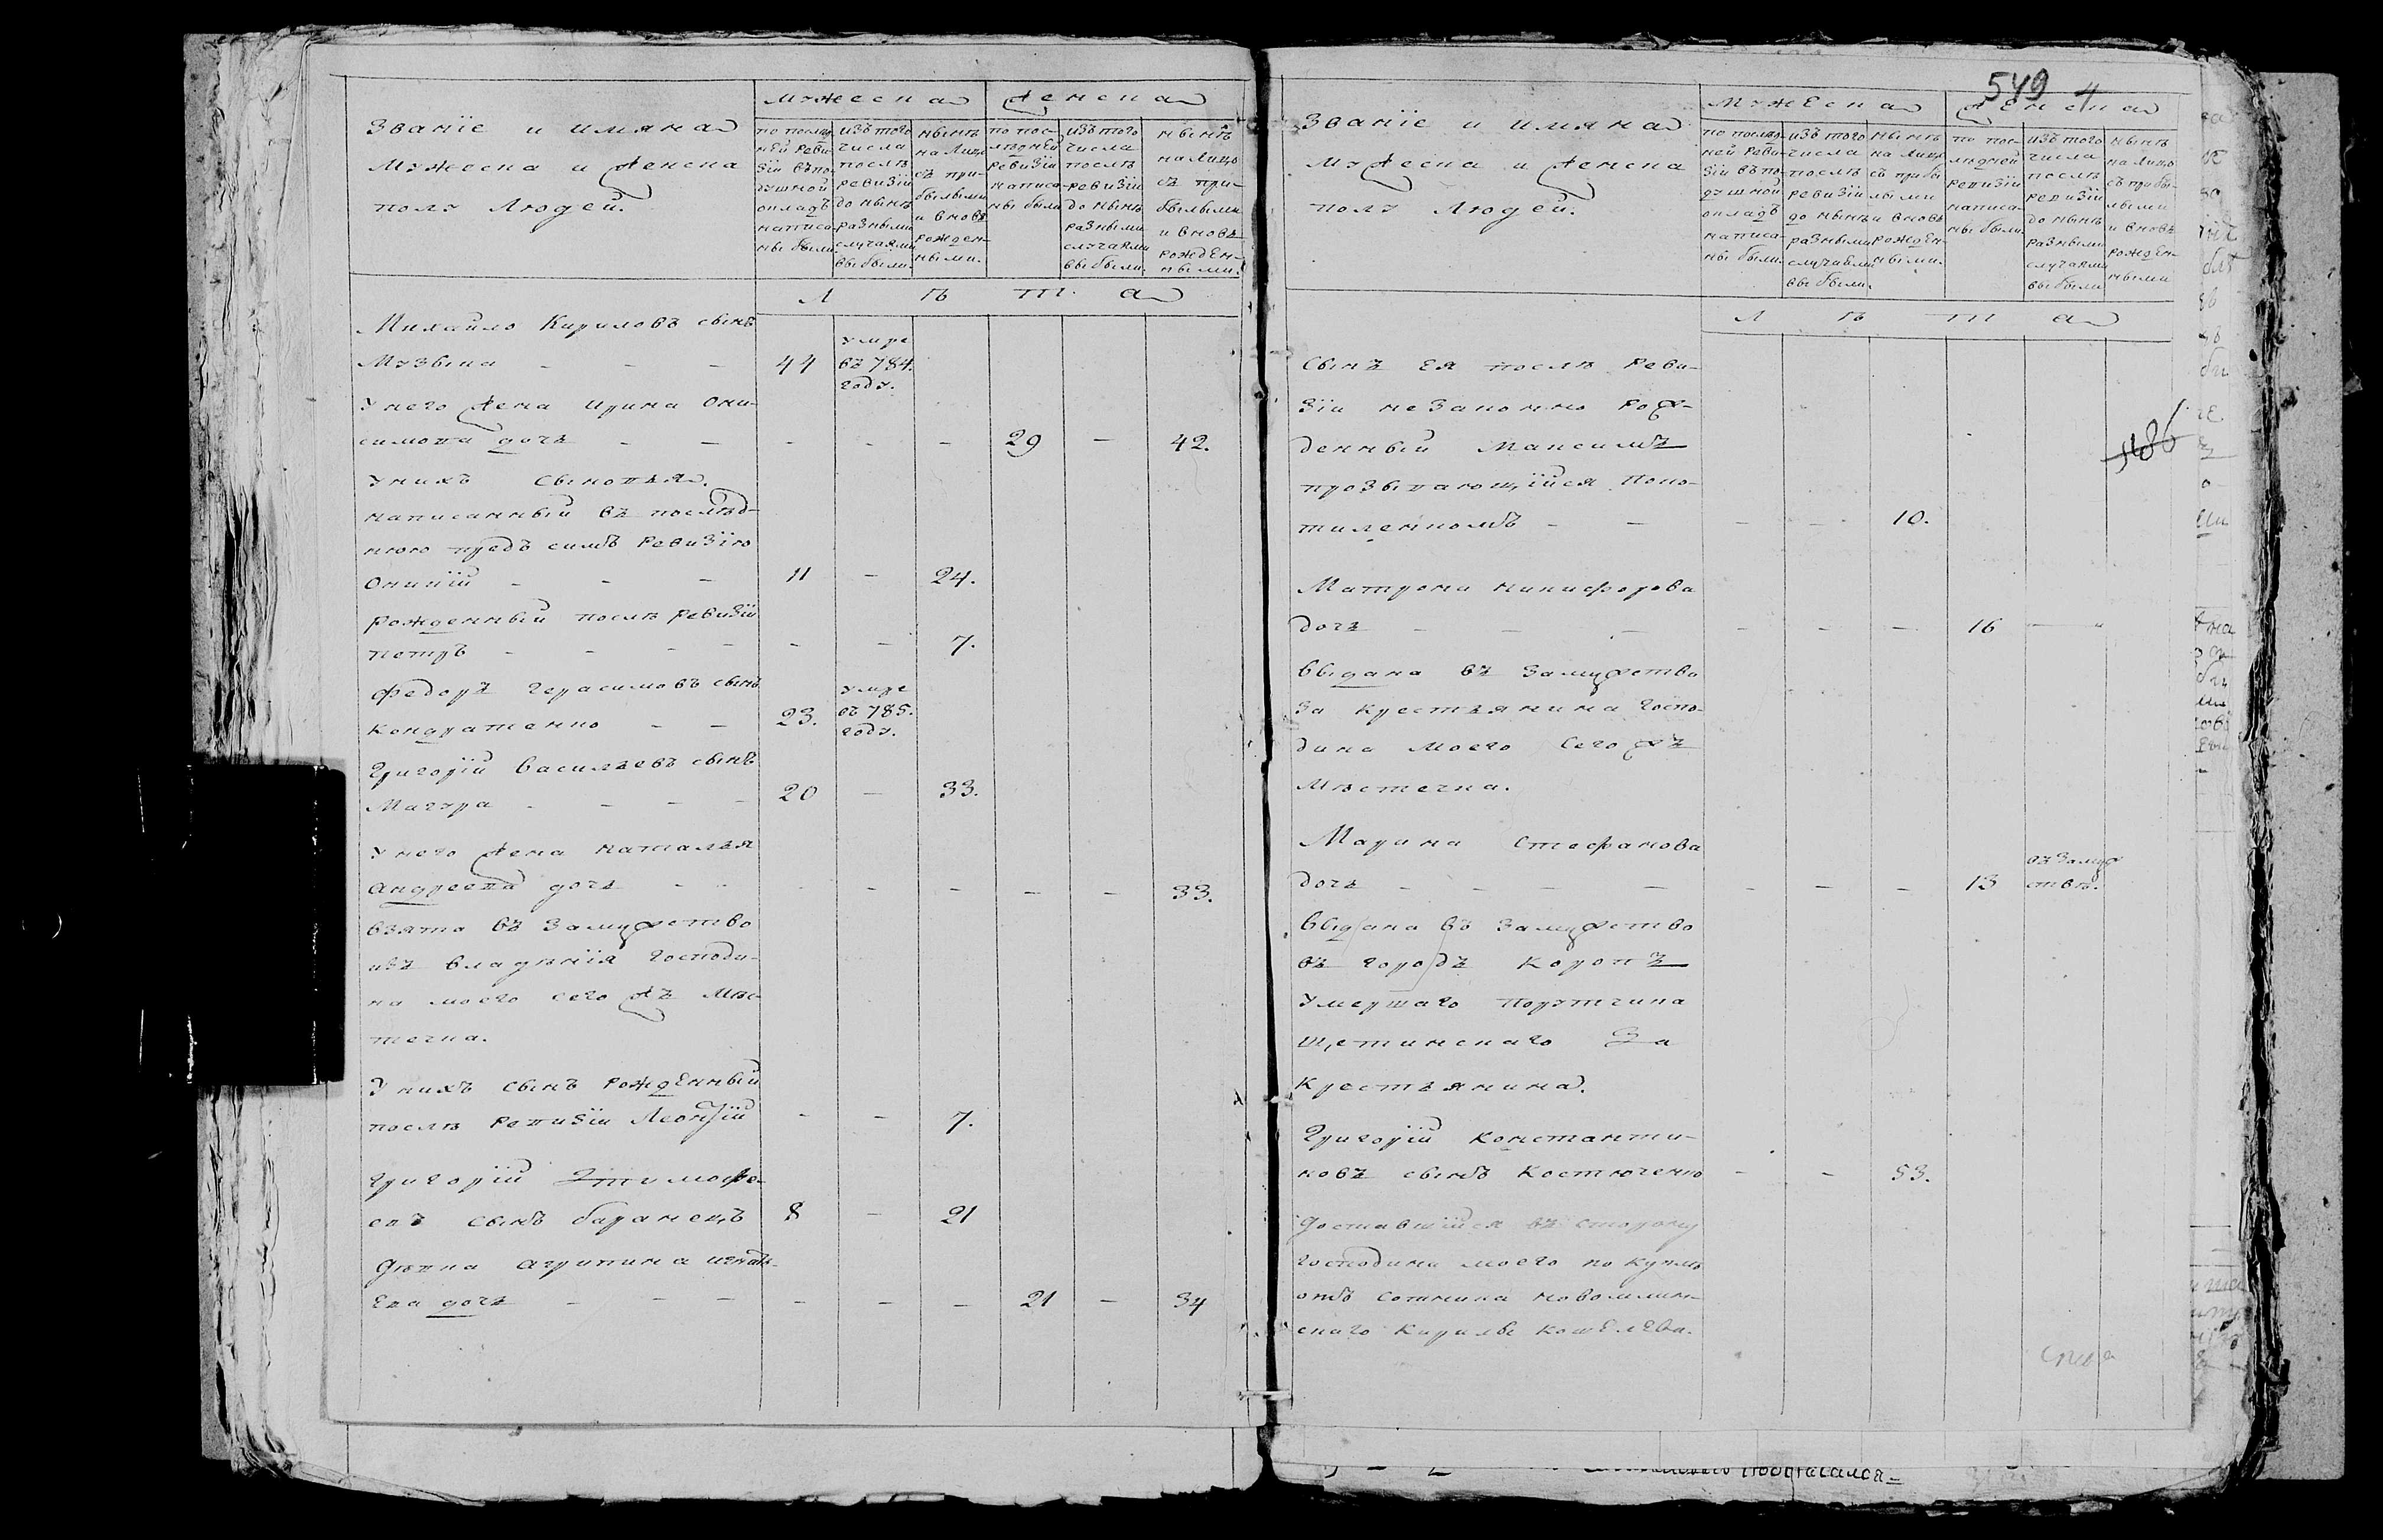 званïе и имяна
мужеска и женска
полу людей.
мужеска
женска
по послед-
ней реви-
зïи въ по-
душной
окладъ
написа-
ны были.
изъ того
числа
послѣ
ревизïи
до нынѣ
разными
случаями
выбыли.
нынѣ
на лицо
съ при-
былыми
и вновь
рожден-
ными.
по пос-
лѣдней
ревизïи
написа-
ны были
изъ того
числа
послѣ
ревизïи
до нынѣ
разными
случаями
выбыли.
нынѣ
на лицо
съ при-
былыми
и вновь
рожден-
ными.
л ѣ т а
Михайло Кириловъ сынъ
Музыка - - - 44 умре въ 784. году.
У него жена Ирина Они-
симова дочь - - - - - 29 - 42.
У нихъ сыновья.
написанный въ послѣд-
нюю предъ симъ ревизïю
Оникiй - - - 11 - 24.
рожденный послѣ ревизïи
петръ - - - - - - 7.
Федоръ Герасимовъ сынъ
Кондратенко - - 23. умре въ 785. году.
Григорïй Васильевъ сынъ
Мачура - - - - 20 - 33.
У него жена наталья
андреева дочь - - - - - - - 33.
взята въ замужство
изъ владѣнïя господи-
на моего сего жъ мѣс-
течка.
У нихъ сынъ рожденный
послѣ ревизïи Леонтïй - - 7.
Григорïй тимофе-
евъ сынъ баранецъ 8 - 21
Дѣвка агрипина игнать-
ева дочь - - - - - - 21 - 34
549 4
званïе и имяна
мужеска и женска
полу людей.
мужеска
женска
по послед-
ней реви-
зïи въ по-
душной
окладъ
написа-
ны были.
изъ того
числа
послѣ
ревизïи
до нынѣ
разными
случаями
выбыли.
нынѣ
на лицо
съ прибы
лыми
и вновь
рожден-
ными.
по пос-
лѣдней
ревизïи
написа-
ны были.
изъ того
числа
послѣ
ревизïи
до нынѣ
разными
случаями
выбыли
нынѣ
на лицо
съ прибы-
лыми
и вновь
рожден-
ными
л ѣ т а
сынъ ея послѣ реви-
зïи незаконно рож-
денный Максимъ
прозывающïйся Коно-
тиленкомъ - - - - 10.
Матрона никифорова
дочь - - - - - - 16 -
выдана въ замужство
за крестьянина госпо-
дина моего сего жъ
мѣстечка.
Марина стефанова
дочь - - - - - - - 13 въ замуж ствѣ.
выдана въ замужство
въ городъ Коропъ
умершаго порутчика
щетинскаго за
крестьянина.
Григорïй константи-
новъ сынъ Костюченко - - 53.
доставшïйся въ сторону
господина моего по куплѣ
отъ сотника новомлин-
скаго Кирилы Кошелева.